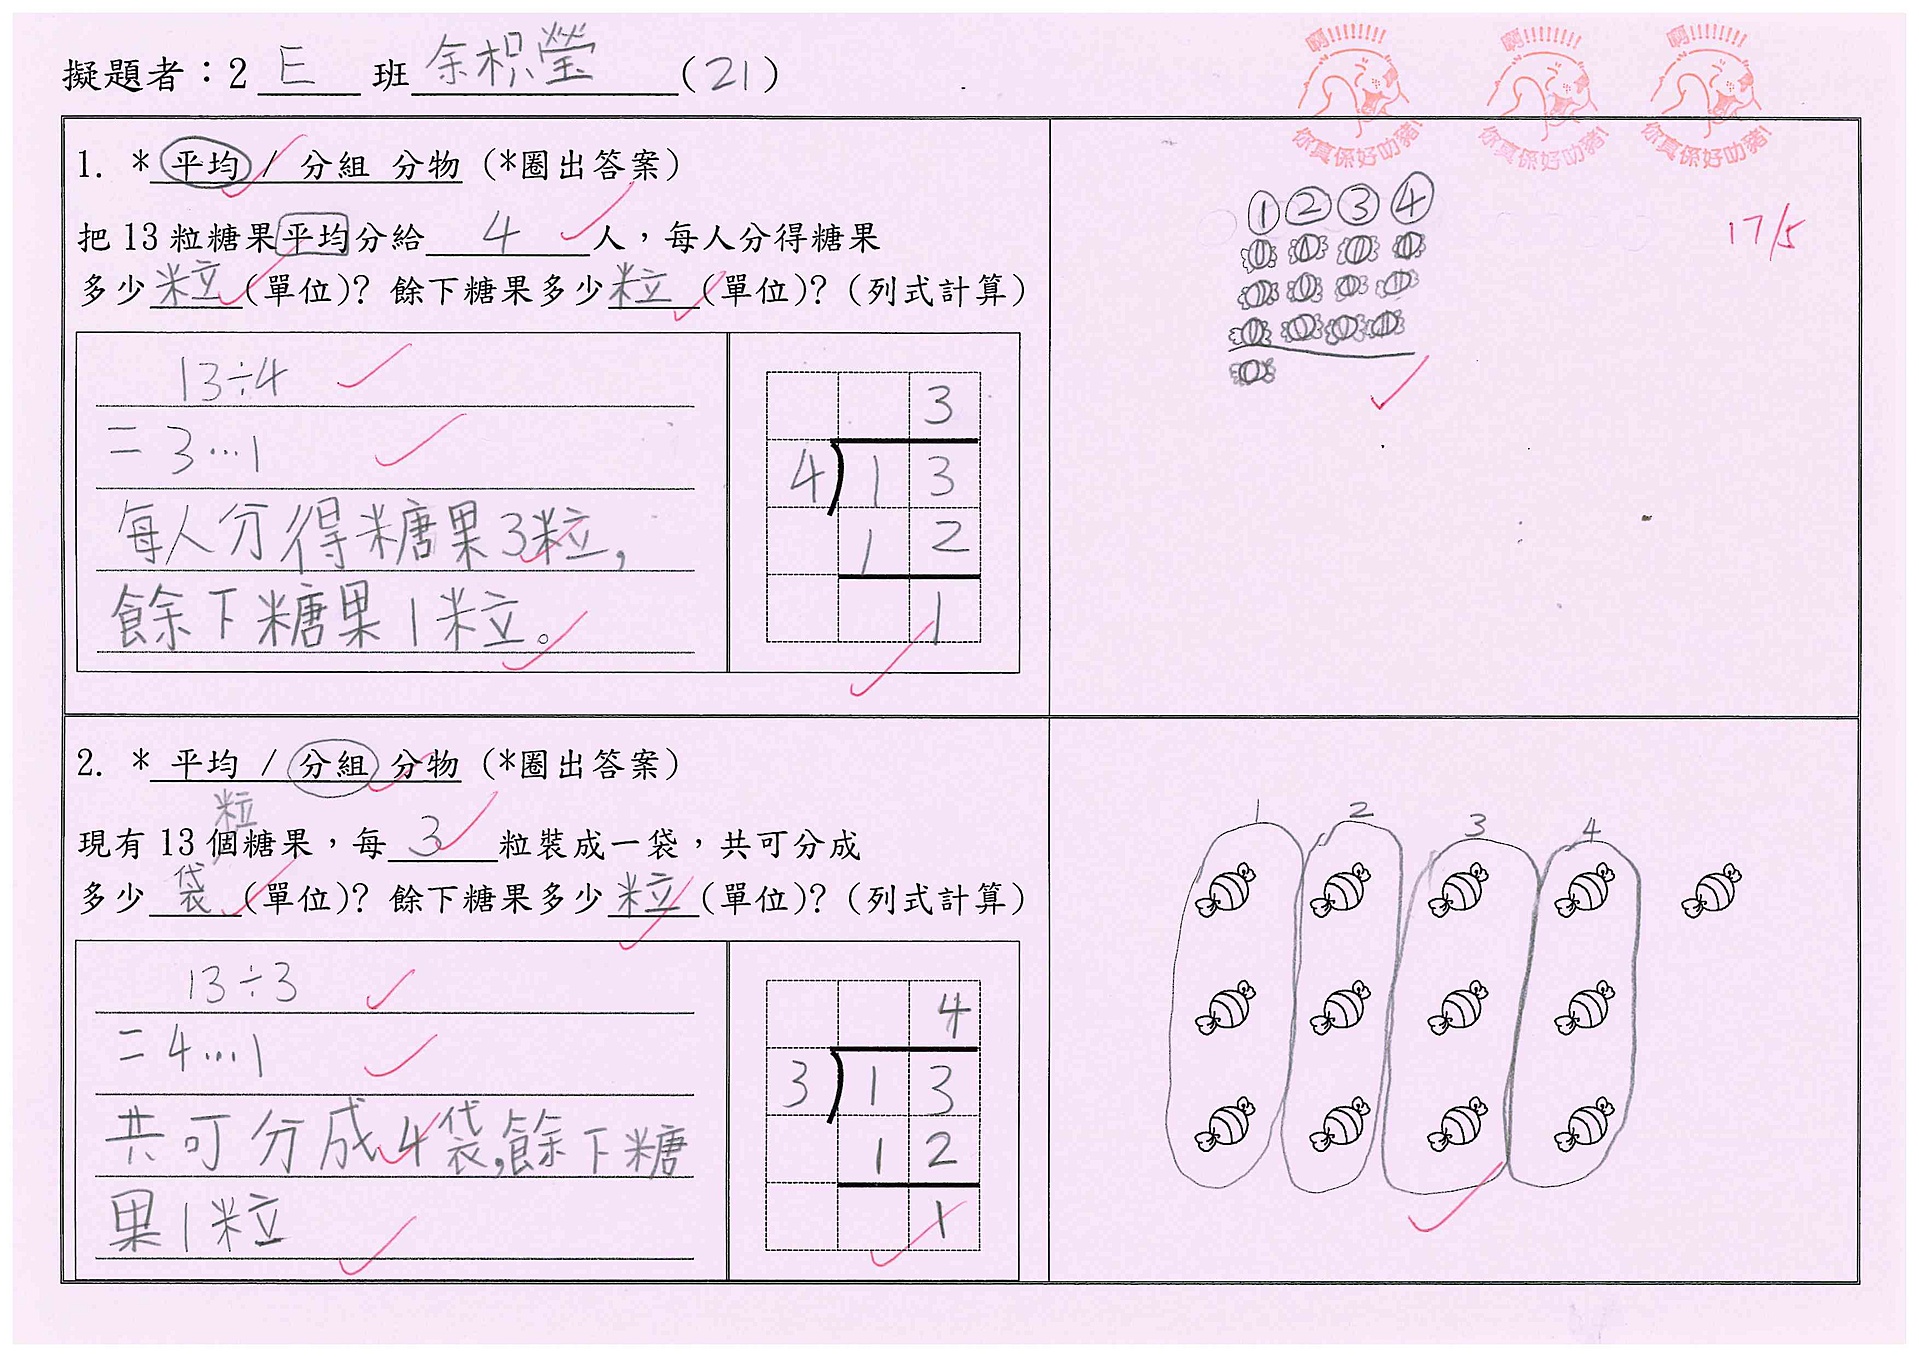 擬題者：2 E 班 余枳瑩 (21)
啊!!!!!!!! 你真係好叻豬!
啊!!!!!!!! 你真係好叻豬!
啊!!!!!!!! 你真係好叻豬!
1. * 平均 / 分組 分物 (*圈出答案)
把 13 粒糖果平均分給 4 人，每人分得糖果
多少 粒 (單位)? 餘下糖果多少 粒 (單位)? (列式計算)
13÷4
= 3…1
每人分得糖果3粒，
餘下糖果1粒。
3
4 1 3
1 2
1
① ② ③ ④
17/5
2. * 平均 / 分組 分物 (*圈出答案)
粒
現有 13 個糖果，每 3 粒裝成一袋，共可分成
多少 袋 (單位)? 餘下糖果多少 粒 (單位)? (列式計算)
13÷3
= 4…1
共可分成4袋,餘下糖
果1粒
4
3 1 3
1 2
1
1 2 3 4